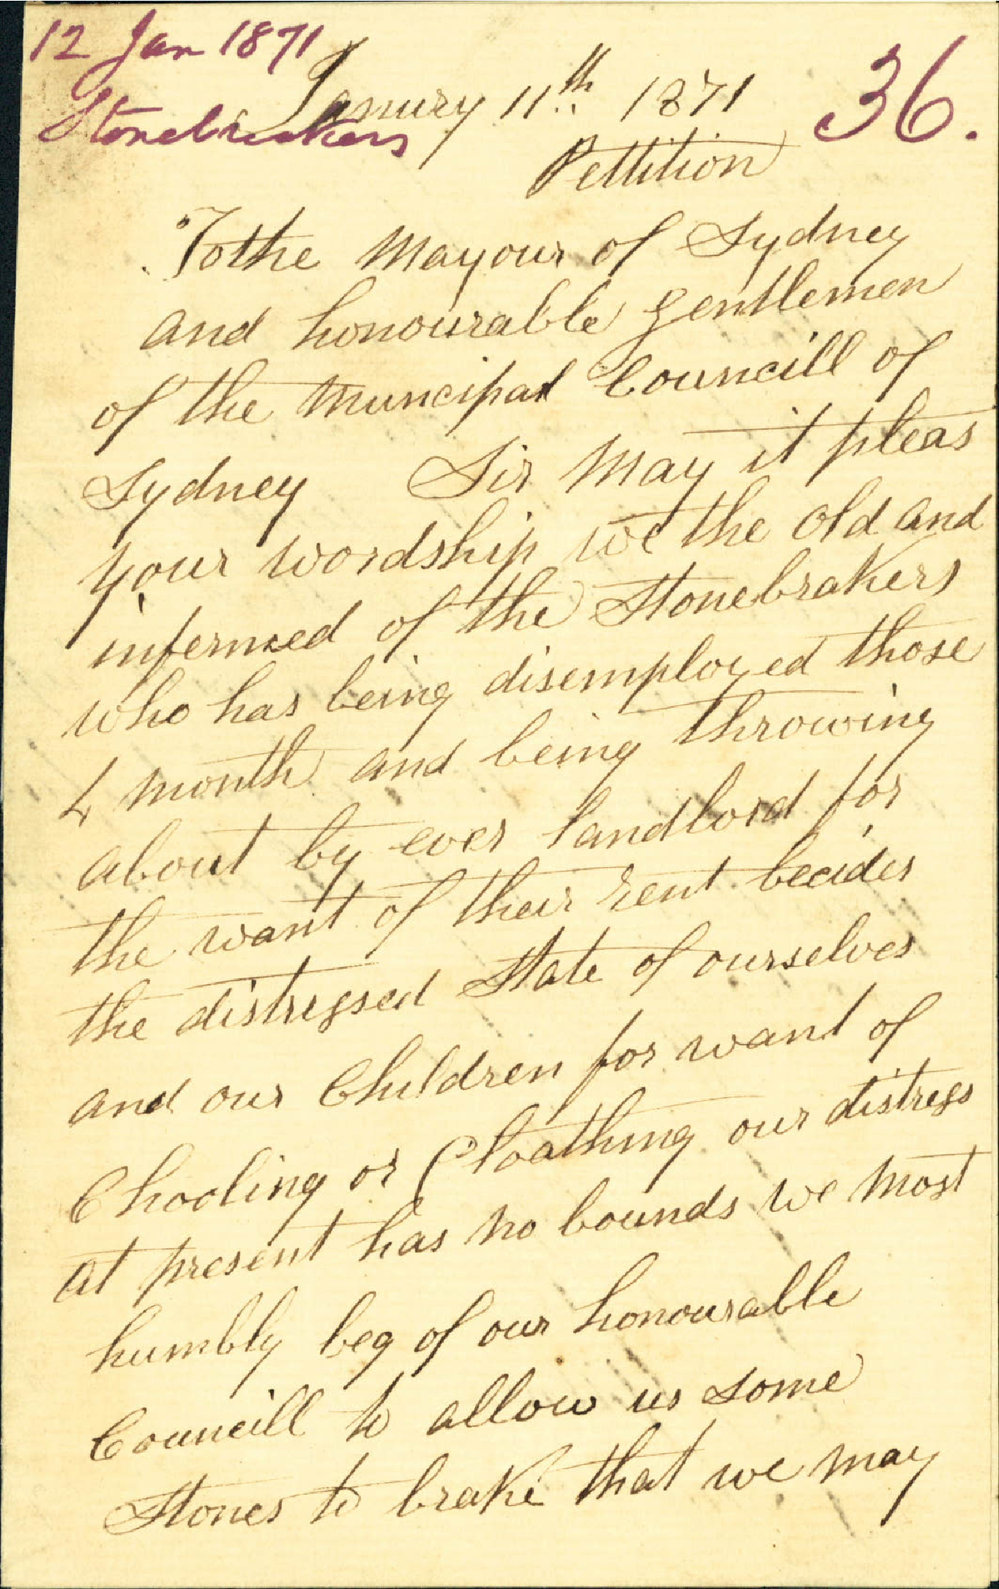 12 Jan 1871
Stonebreakers
Janury 11th 1871
36.
Pettition
To the Mayour of Sydney
and honourable gentlemen
of the Muncipal Councill of
Sydney Sir May it pleas
your wordship we the old and
infermed of the Stonebrakers
who has being disemployed those
4 month and being throwing
about by ever landlord for
the want of their rent becides
the distressed State of ourselves
and our Children for want of
Chooling or Cloathing our distress
at present has no bounds we most
humbly beg of our honourable
Councill to allow us some
Stones to brake that we may